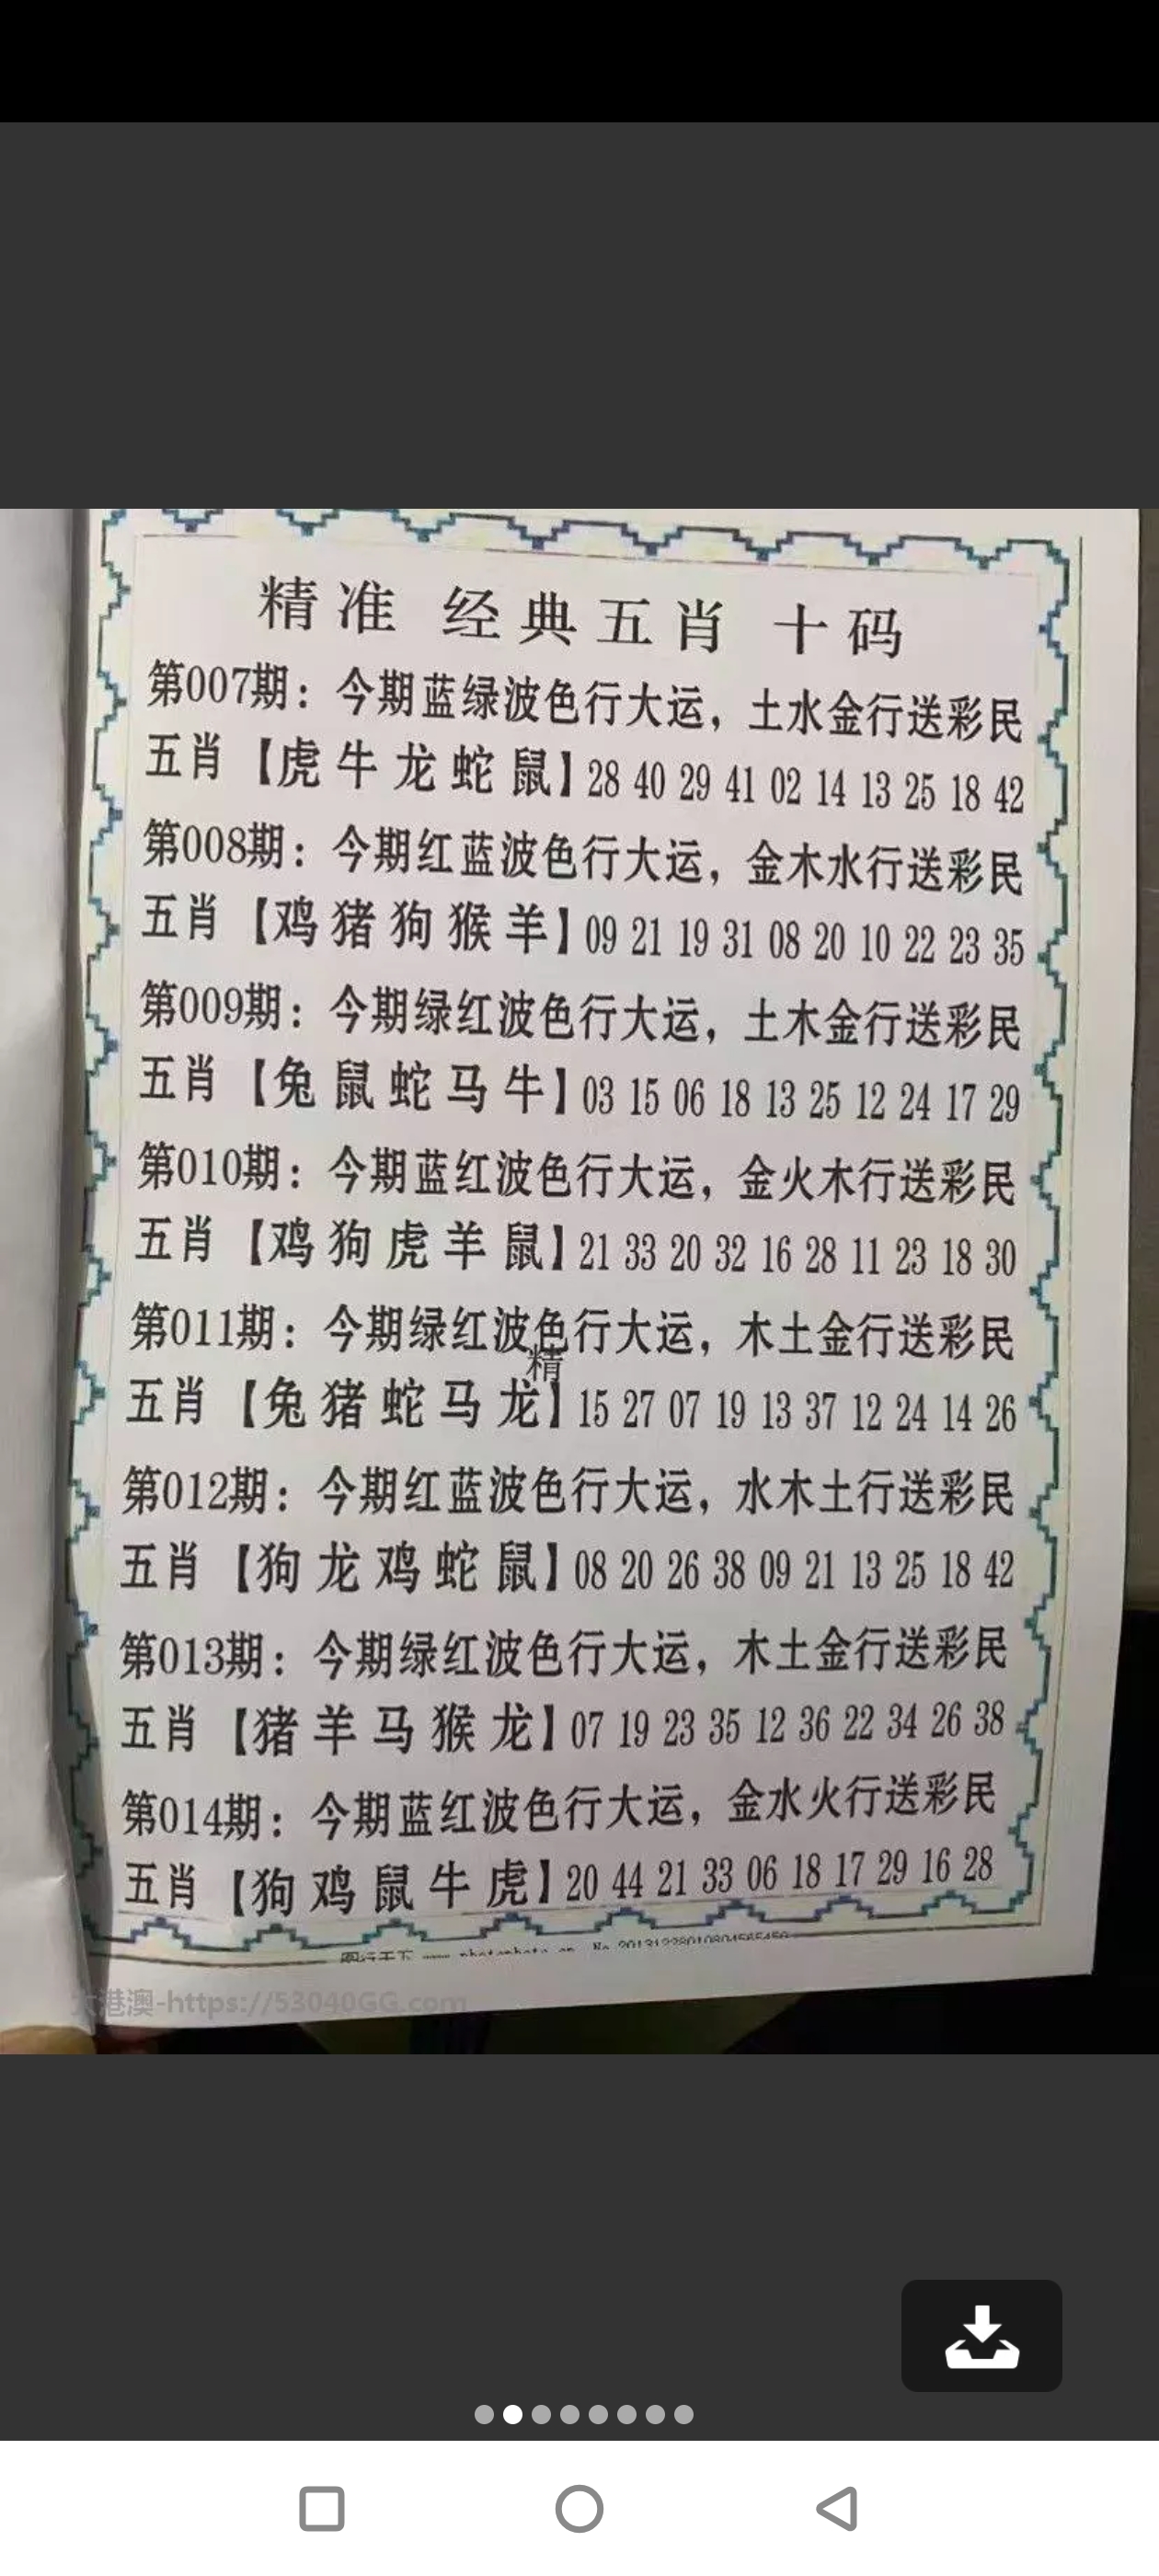 精准 经典五肖 十码
第007期：今期蓝绿波色行大运，土水金行送彩民
五肖【虎牛龙蛇鼠】28 40 29 41 02 14 13 25 18 42
第008期：今期红蓝波色行大运，金木水行送彩民
五肖【鸡猪狗猴羊】09 21 19 31 08 20 10 22 23 35
第009期：今期绿红波色行大运，土木金行送彩民
五肖【兔鼠蛇马牛】03 15 06 18 13 25 12 24 17 29
第010期：今期蓝红波色行大运，金火木行送彩民
五肖【鸡狗虎羊鼠】21 33 20 32 16 28 11 23 18 30
第011期：今期绿红波色行大运，木土金行送彩民
精
五肖【兔猪蛇马龙】15 27 07 19 13 37 12 24 14 26
第012期：今期红蓝波色行大运，水木土行送彩民
五肖【狗龙鸡蛇鼠】08 20 26 38 09 21 13 25 18 42
第013期：今期绿红波色行大运，木土金行送彩民
五肖【猪羊马猴龙】07 19 23 35 12 36 22 34 26 38
第014期：今期蓝红波色行大运，金水火行送彩民
五肖【狗鸡鼠牛虎】20 44 21 33 06 18 17 29 16 28
港澳-https://53040GG.com